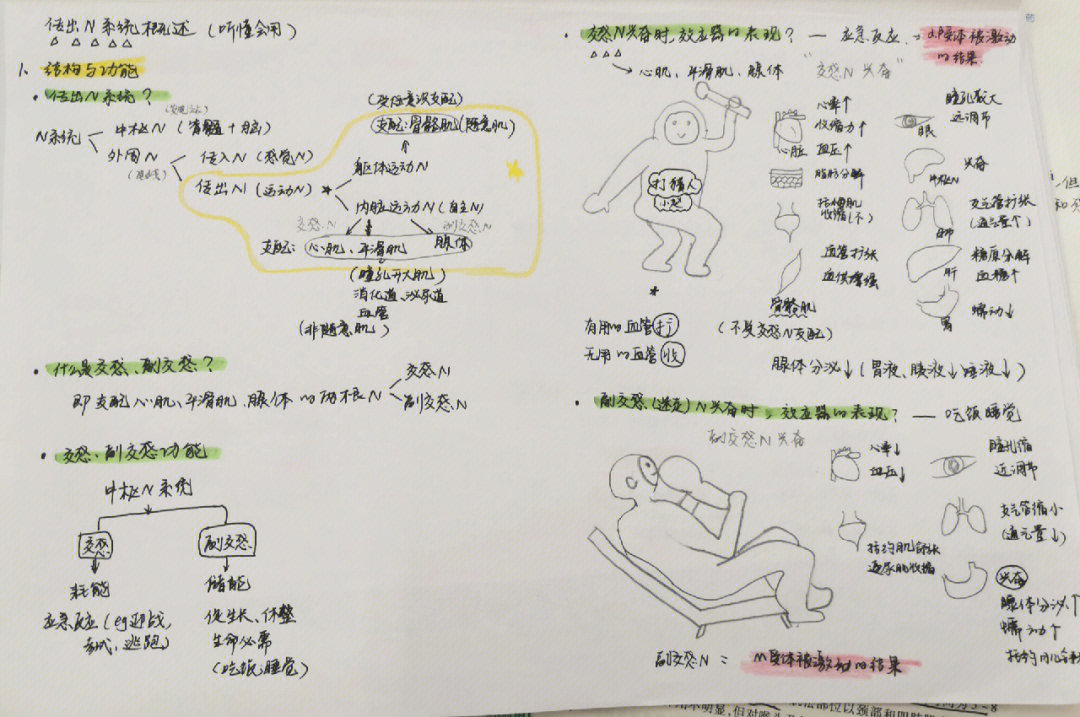 传出N系统概述 (听懂会用)
1、结构与功能
· 传出N系统?
N系统
中枢N (脊髓+脑)
外周N
传入N (感觉N)
传出N (运动N)
躯体运动N
(受随意识支配)
支配:骨骼肌(随意肌)
内脏运动N (自主N)
交感N
副交感N
支配: 心肌、平滑肌 腺体
(瞳孔开大肌)
消化道、泌尿道
血管
(非随意肌)
· 什么是交感、副交感?
即支配心肌、平滑肌、腺体的两个N
交感N
副交感N
· 交感、副交感功能
中枢N系统
交感
副交感
耗能
储能
应急反应 (eg迎战,
考试、逃跑)
促生长、休整
生命必需
(吃饭、睡觉)
· 交感N兴奋时,效应器的表现? — 应急反应
α、β受体被激动
的结果
心肌、平滑肌、腺体
"交感N 兴奋"
打猎人
心率↑
收缩力↑
血压↑
心脏
脂肪分解
括约肌
收缩
血管扩张
血供增强
骨骼肌
(不受交感N支配)
瞳孔散大
远调节
眼
兴奋
中枢N
支气管扩张
(通气量↑)
肺
糖原分解
血糖↑
肝
蠕动↓
胃
*
有用的血管扩
无用的血管收
腺体分泌↓ (胃液、胰液↓唾液↓)
· 副交感(迷走)N兴奋时,效应器的表现? — 吃饭睡觉
副交感N兴奋
心率↓
血压↓
瞳孔缩
近调节
支气管缩小
(通气量↓)
括约肌舒张
逼尿肌收缩
兴奋
腺体分泌↑
蠕动↑
括约肌
副交感N = M受体被激动的结果